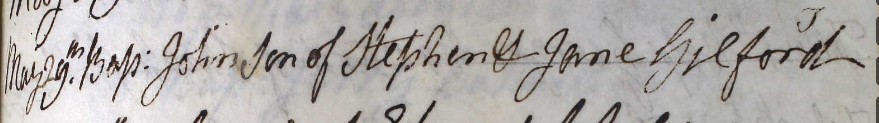 May 29th. Bap: John Son of Stephen & Jane Gilford